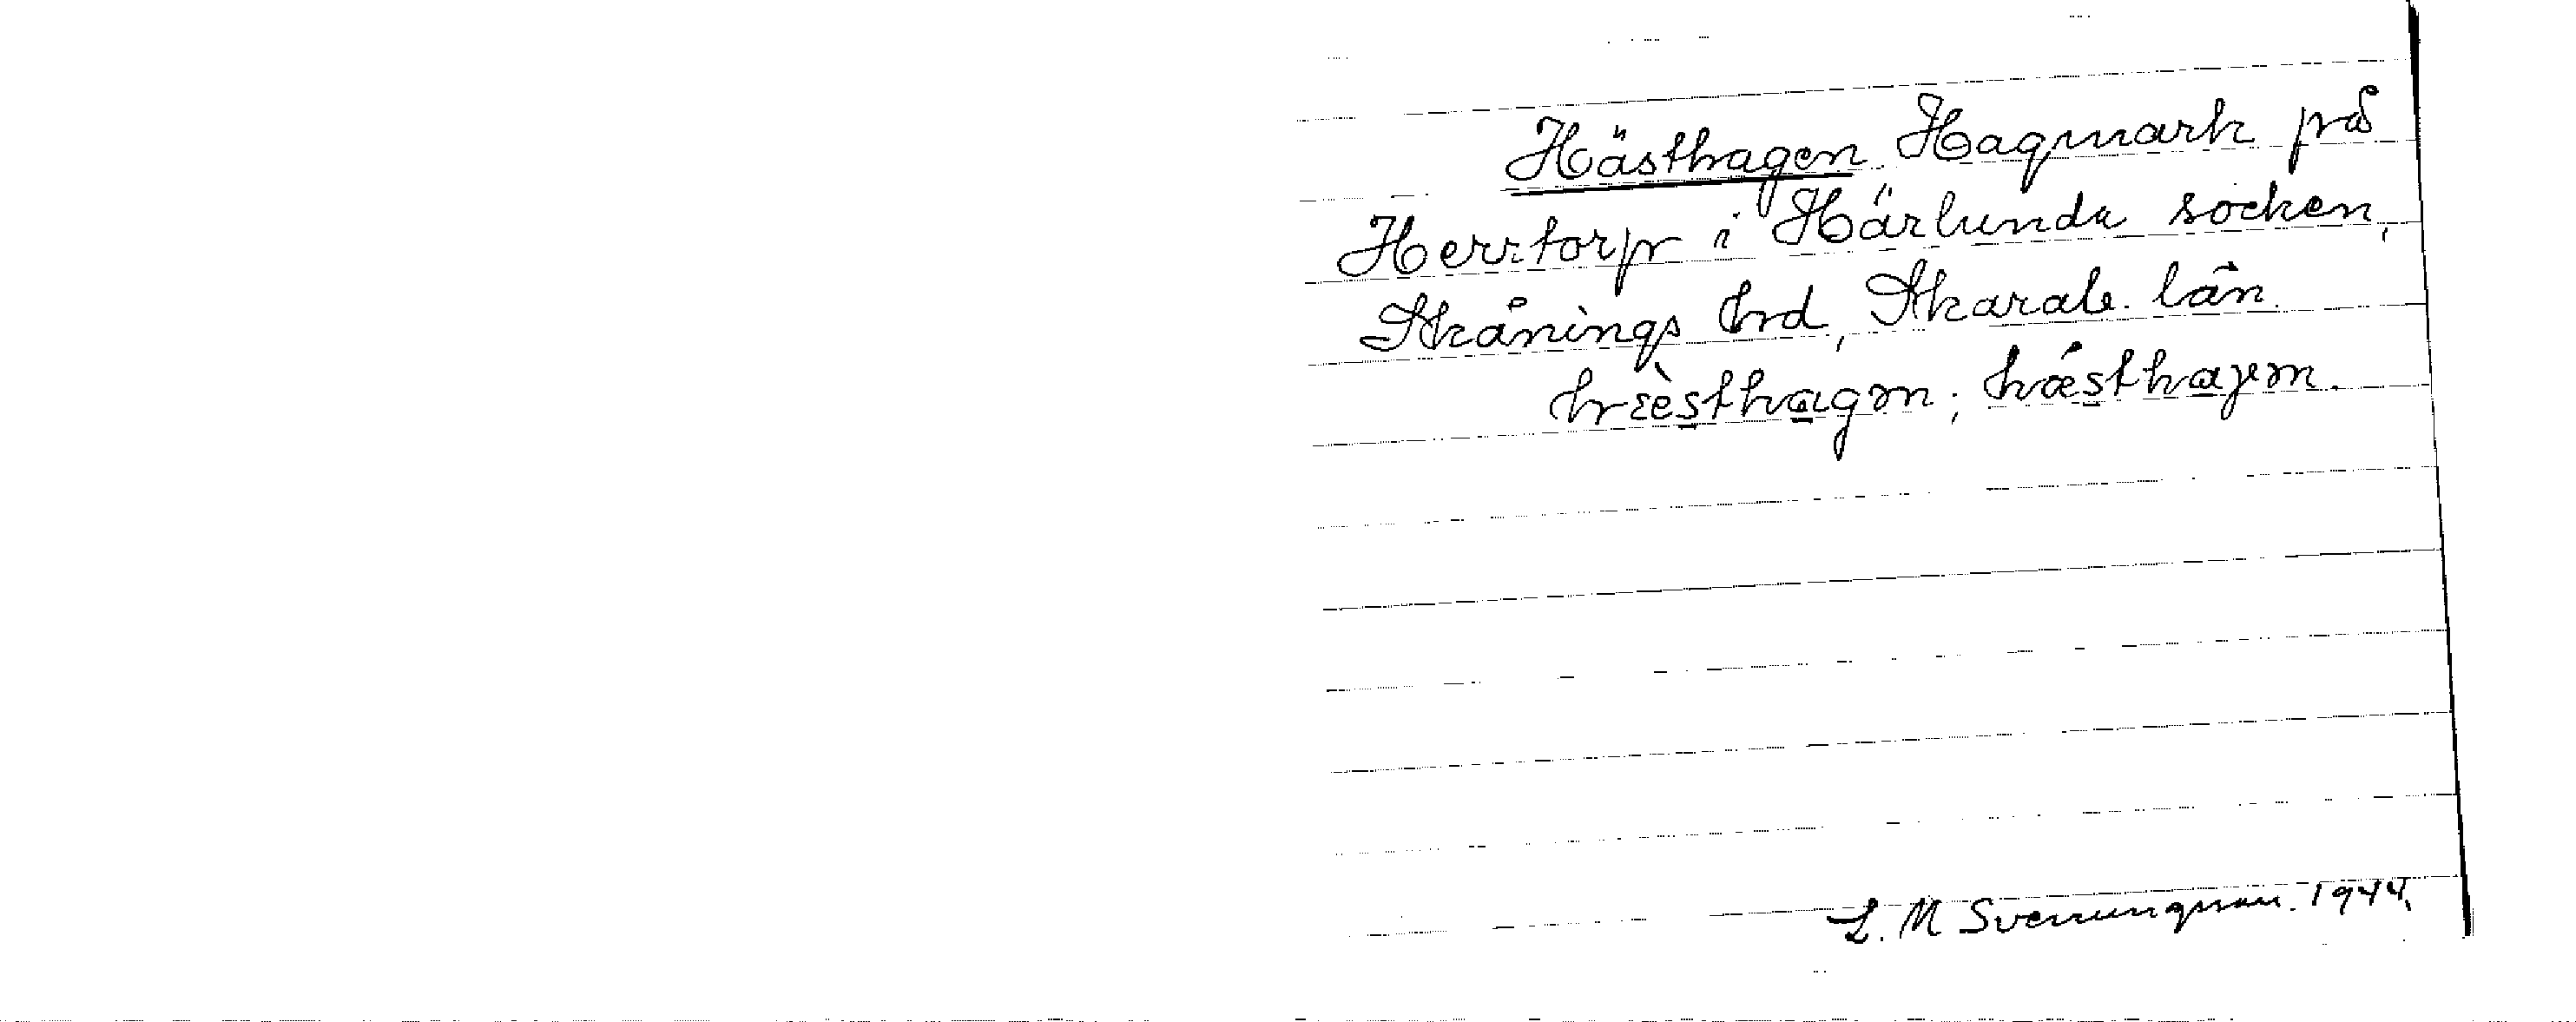 Hästhagen. Hagmark på
Herrtorp i Härlunda socken,
Skånings hrd, Skarab. län.
hæ̀sthagən; hǽsthaγəm.
L. M Svenungsson. 1944.